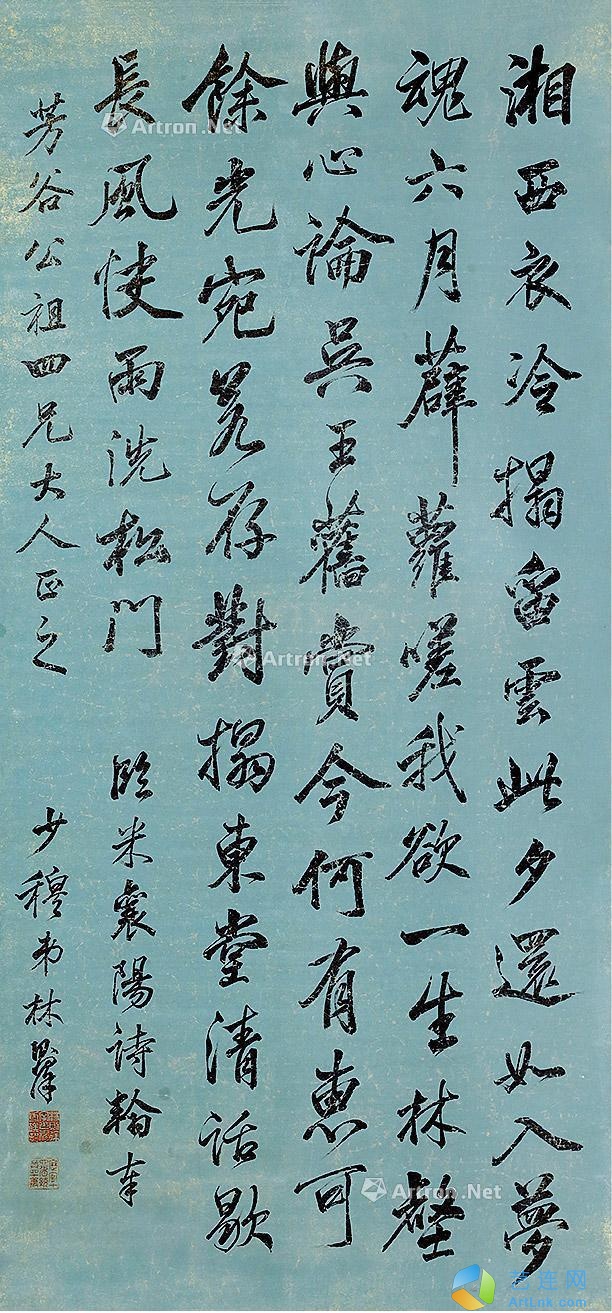 湘西衣冷搨留雲此夕還如入夢
魂六月薜蘿嗟我欲一生林壑
與心論吳王舊賞今何有惠可
餘光宛若存對搨東堂清話歇
長風快雨洗松門
臨米襄陽詩翰奉
芳谷公祖四兄大人正之
少穆弟林則徐
Artron.Net
Artron.Net
Artron.Net
艺连网
ArtLnk.com